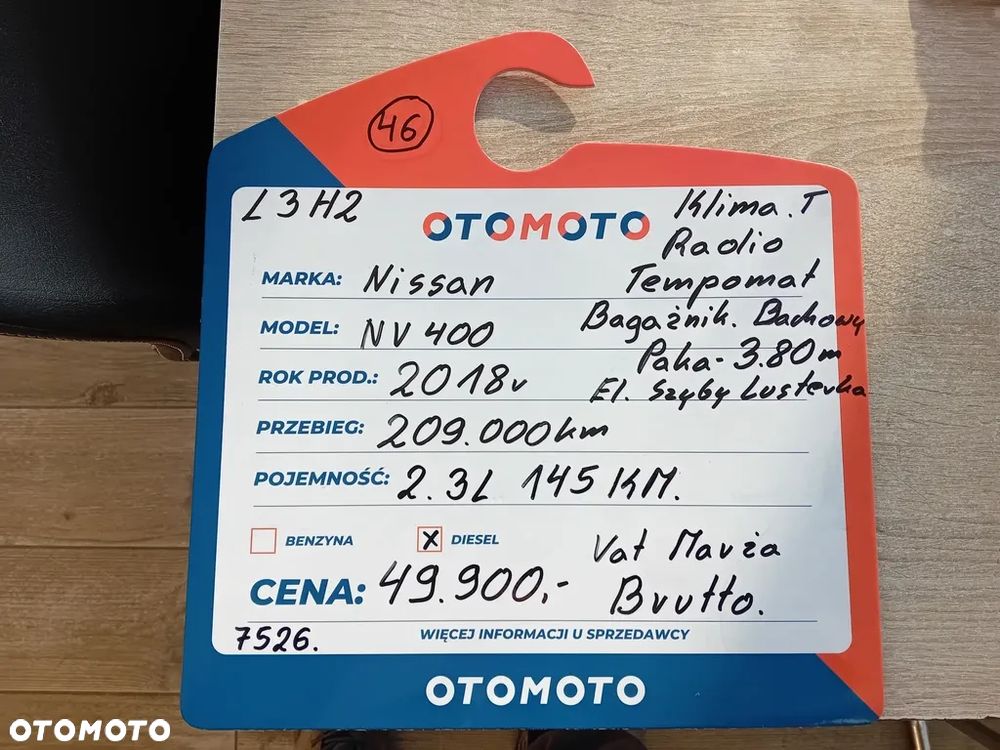 46
L3H2
OTOMOTO
Klima. T
Radio
MARKA: Nissan
Tempomat
MODEL: NV 400
Bagażnik. Dachowy
Paka - 3.80m
ROK PROD.: 2018r
El. Szyby Lusterka
PRZEBIEG: 209.000km
POJEMNOŚĆ: 2.3L 145 KM.
BENZYNA X DIESEL
Vat Marża
CENA: 49.900,- Brutto.
7526. WIĘCEJ INFORMACJI U SPRZEDAWCY
OTOMOTO
OTOMOTO